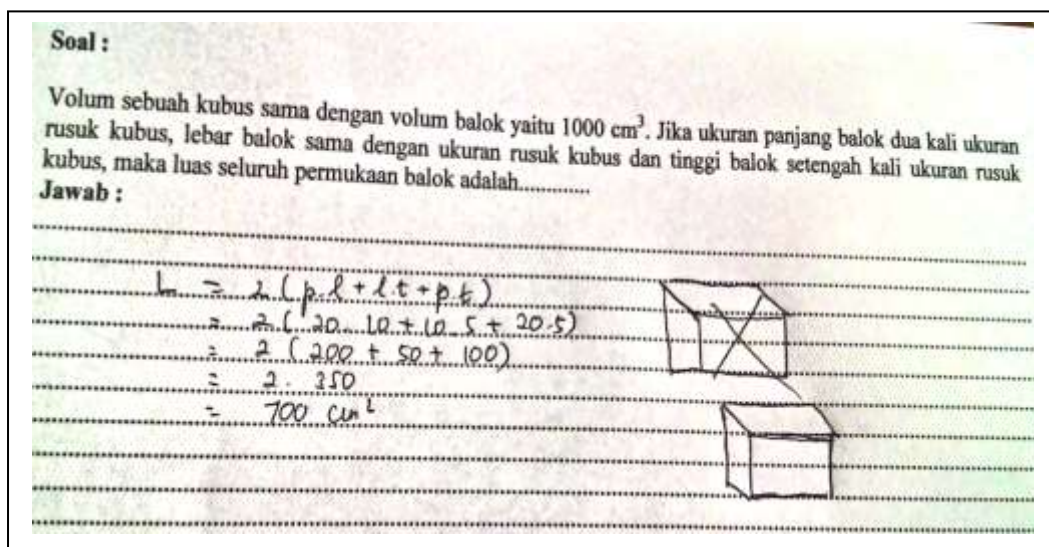 Soal :
Volum sebuah kubus sama dengan volum balok yaitu 1000 cm³. Jika ukuran panjang balok dua kali ukuran
rusuk kubus, lebar balok sama dengan ukuran rusuk kubus dan tinggi balok setengah kali ukuran rusuk
kubus, maka luas seluruh permukaan balok adalah.............
Jawab :
L = 2 (p.l + l.t + p.t)
= 2 ( 20. 10 + 10 . 5 + 20.5)
= 2 ( 200 + 50 + 100)
= 2. 350
= 700 cm²